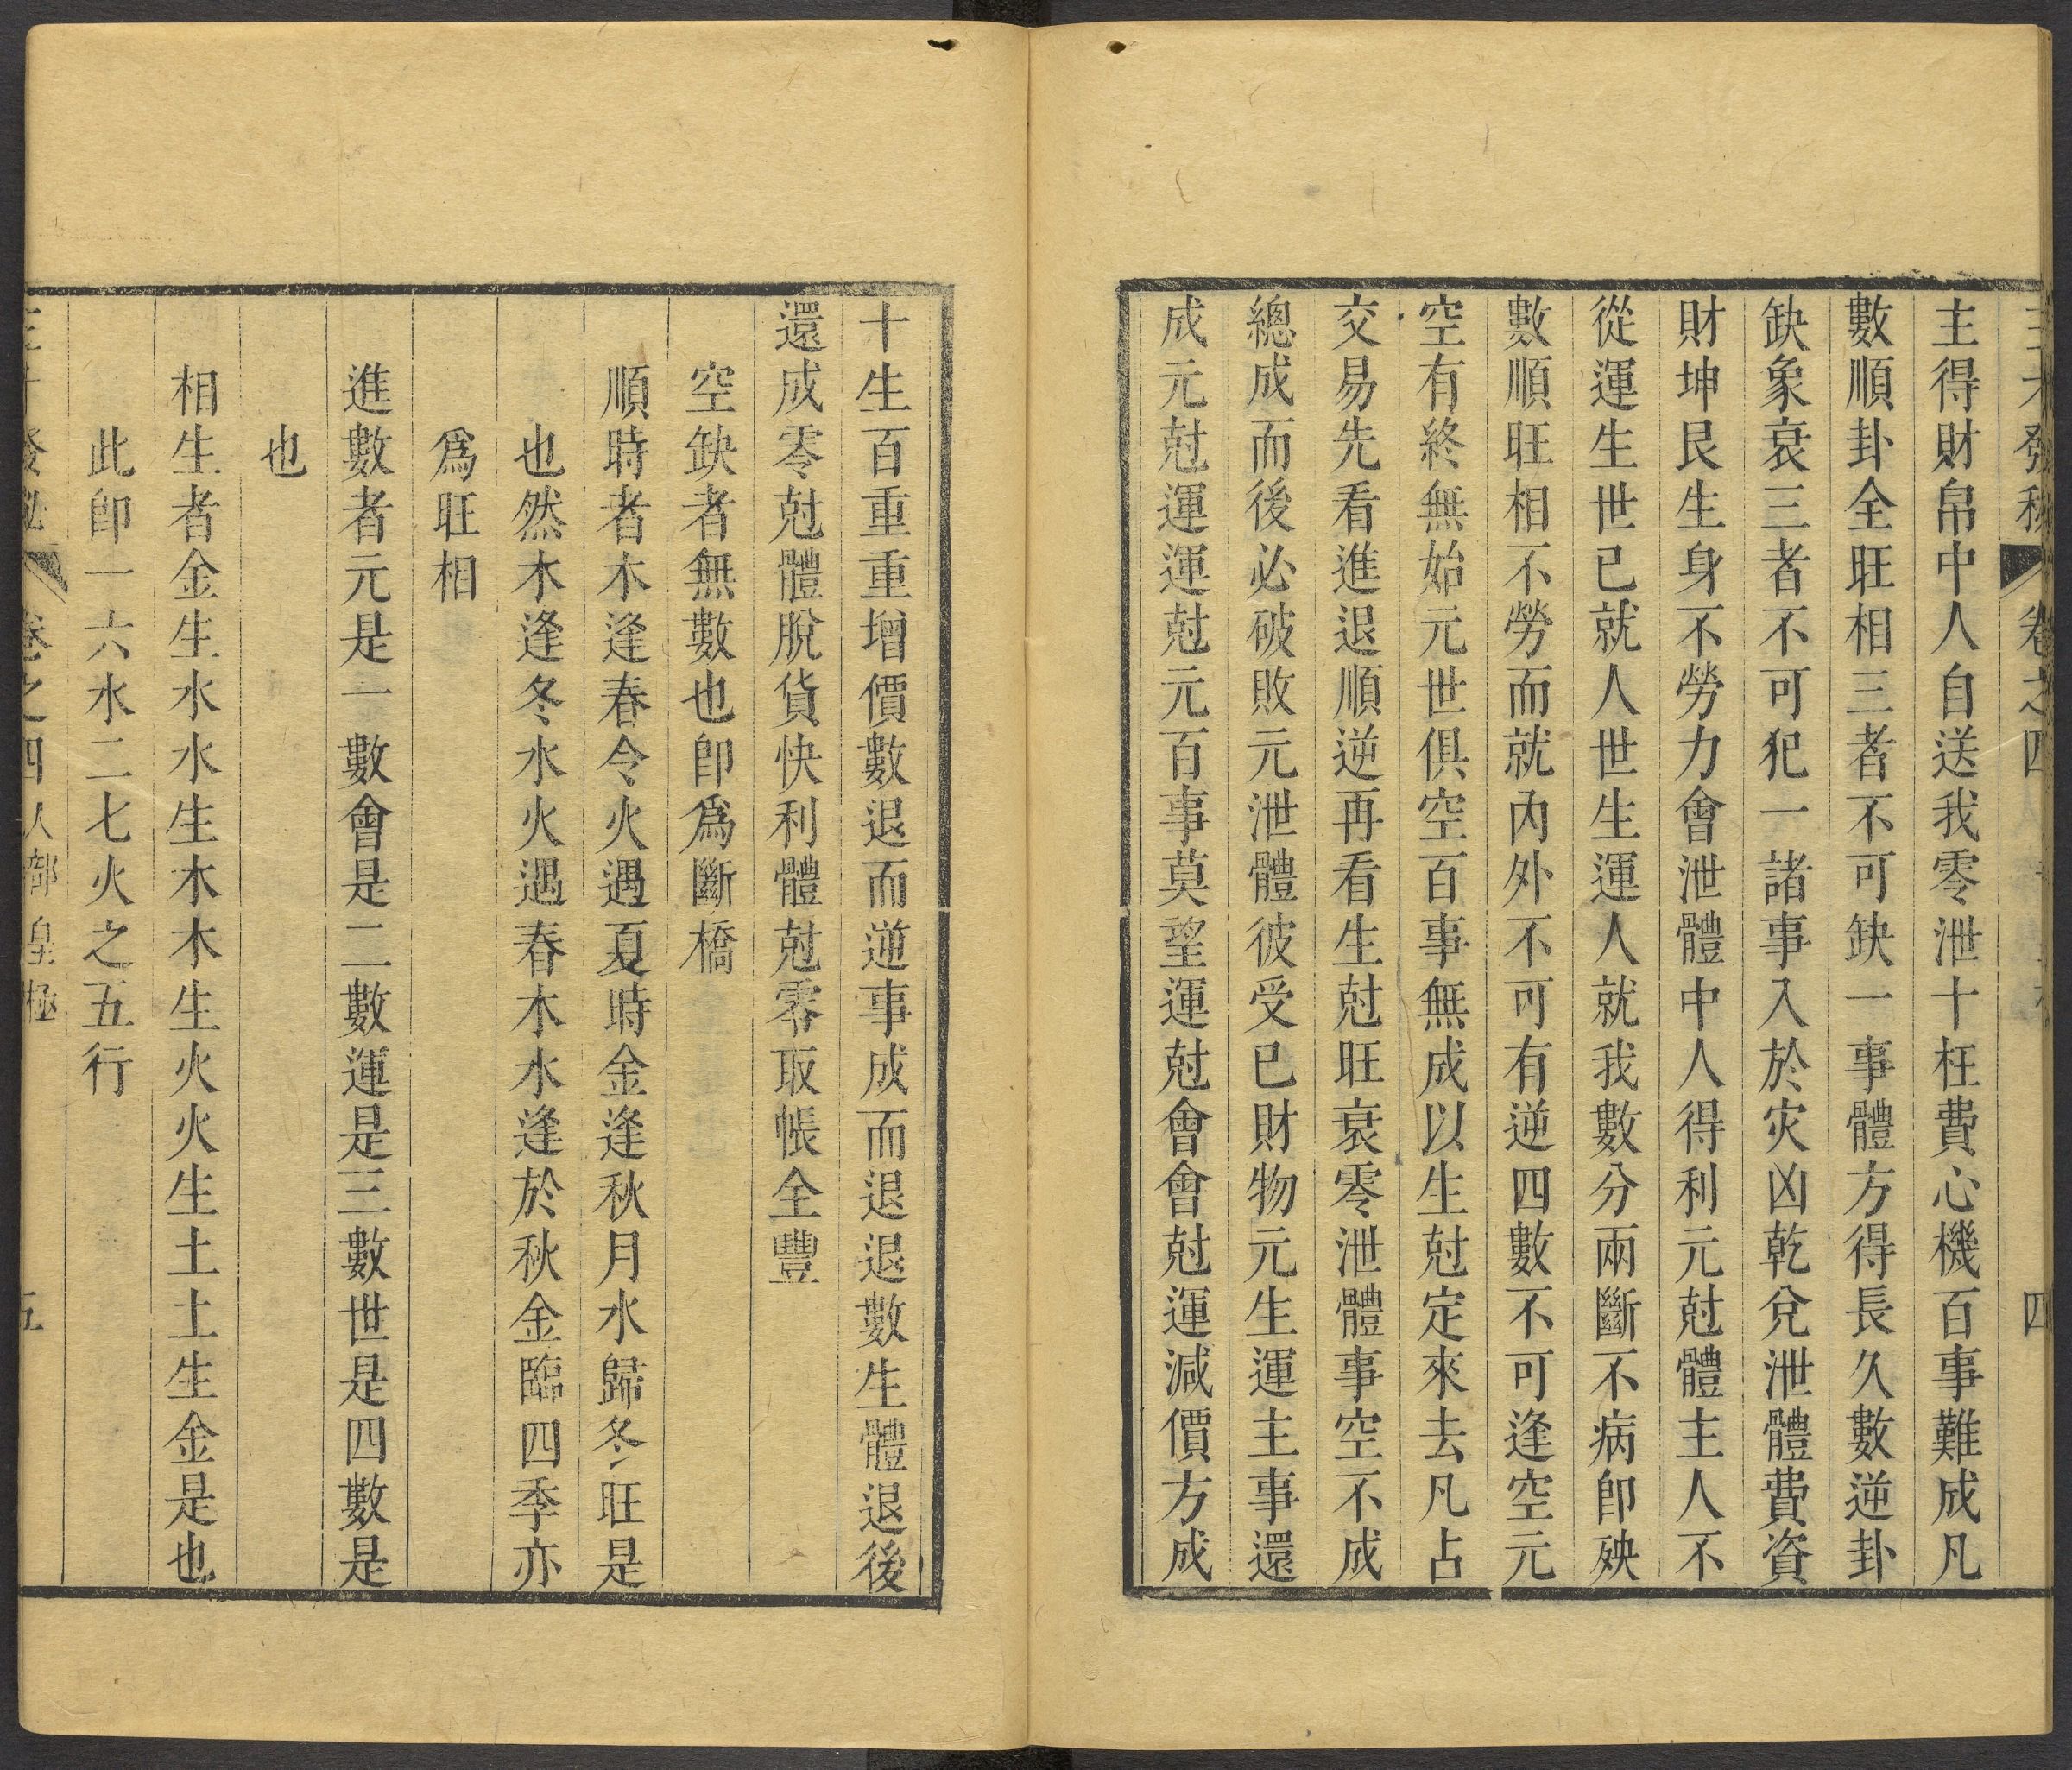 三才發秘 卷之四 四
主得財帛中人自送我零泄十枉費心機百事難成凡
數順卦全旺相三者不可缺一事體方得長久數逆卦
缺象衰三者不可犯一諸事入於灾凶乾兌泄體費資
財坤艮生身不勞力會泄體中人得利元尅體主人不
從運生世已就人世生運人就我數分兩斷不病卽殃
數順旺相不勞而就內外不可有逆四數不可逢空元
空有終無始元世俱空百事無成以生尅定來去凡占
交易先看進退順逆再看生尅旺衰零泄體事空不成
總成而後必破敗元泄體彼受已財物元生運主事還
成元尅運運尅元百事莫望運尅會會尅運減價方成
十生百重重增價數退而逆事成而退退數生體退後
還成零尅體脫貨快利體尅零取帳全豐
空缺者無數也卽爲斷橋
順時者木逢春令火遇夏時金逢秋月水歸冬旺是
也然木逢冬水火遇春木水逢於秋金臨四季亦
爲旺相
進數者元是一數會是二數運是三數世是四數是
也
相生者金生水水生木木生火火生土土生金是也
此卽一六水二七火之五行
三才發秘 卷之四人部皇極 五